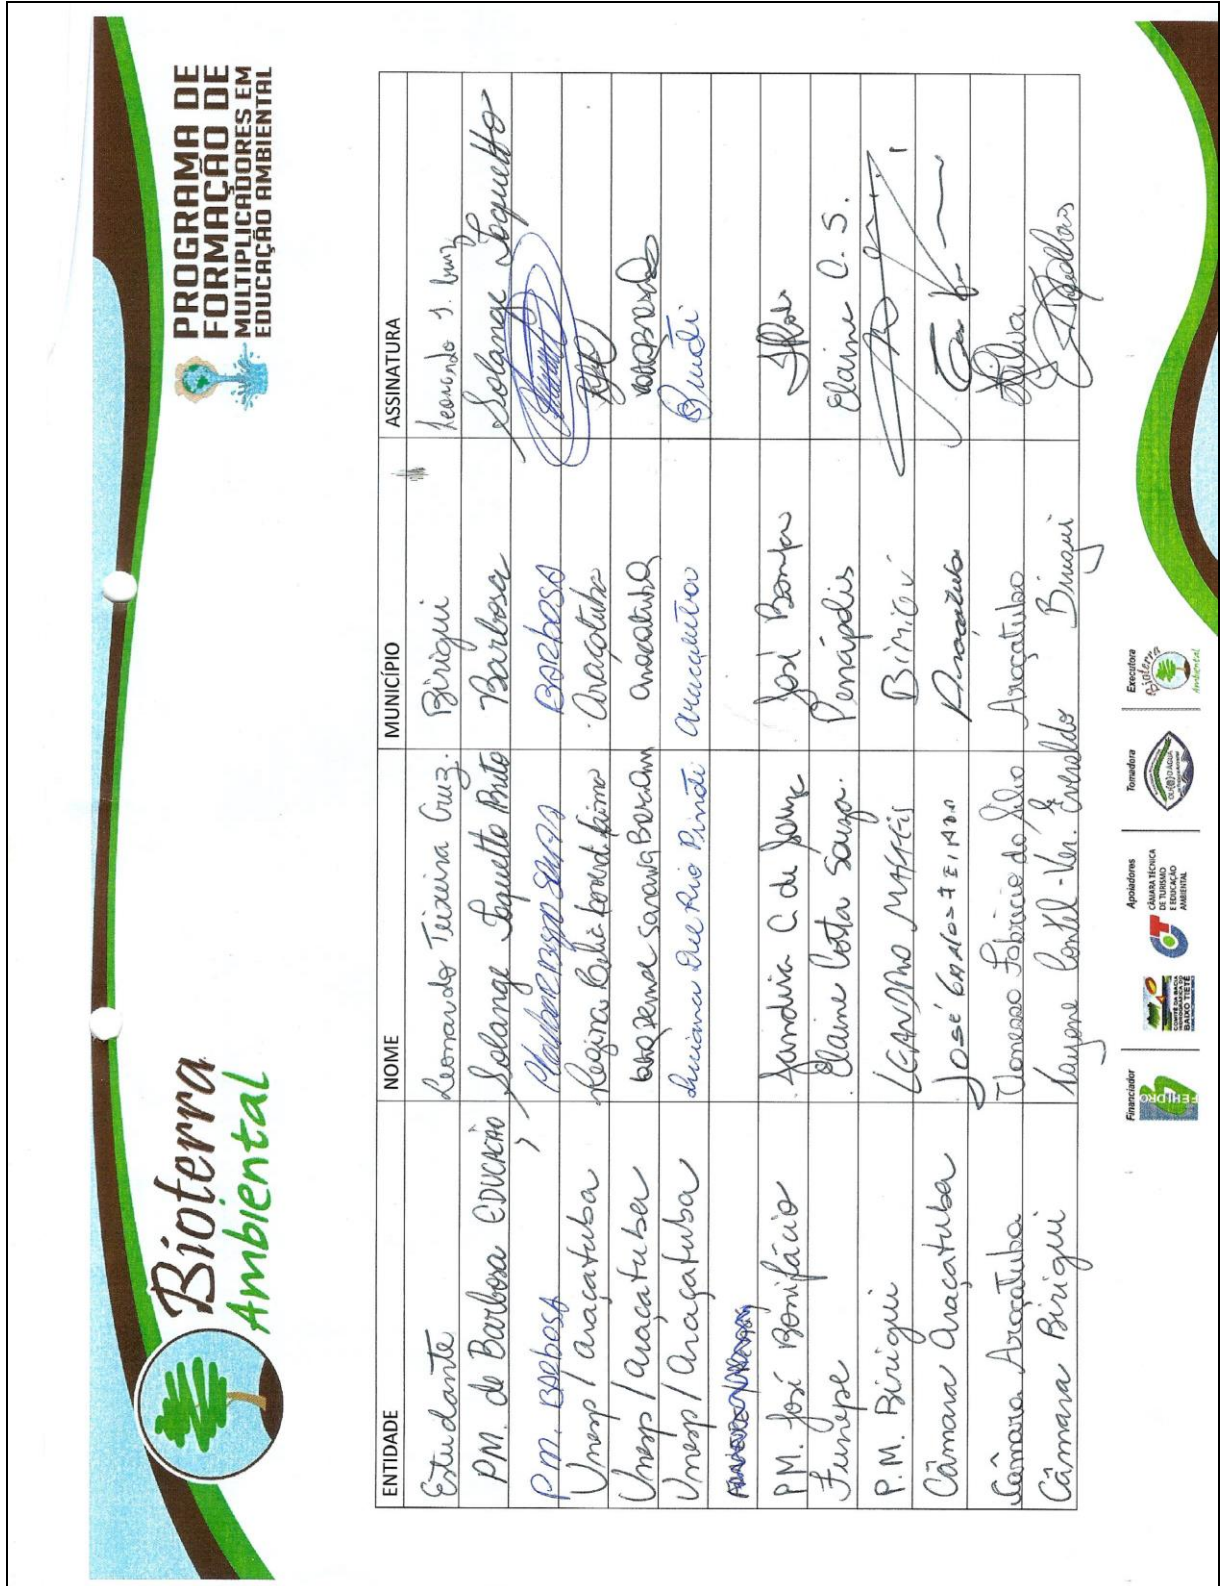 Bioterra
Ambiental
PROGRAMA DE
FORMAÇÃO DE
MULTIPLICADORES EM
EDUCAÇÃO AMBIENTAL
ENTIDADE NOME MUNICÍPIO ASSINATURA
Estudante Leonardo Teixeira Cruz. Birigui Leonardo T. Cruz
P.M. de Barbosa EDUCAÇÃO Solange Toquetto Barbosa Solange Toquetto
P.M. BARBOSA BARBOSA
Unesp / Araçatuba Regina Araçatuba
Unesp / Araçatuba Araçatuba
Unesp / Araçatuba Luciana Del Rio Pinoti Araçatuba Pinoti
P.M. José Bonifácio Jandira C de José Bonifa
Funepe Elaine Costa Souza. Penápolis Elaine C. S.
P.M. Birigui LEANDRO MAFFEIS BIRIGUI
Câmara Araçatuba José CARLOS Araçatuba
Câmara Araçatuba Vanessa Fabricio da Silva Araçatuba Silva
Câmara Birigui Contel - Ver. Birigui
Financiador
FEHIDRO
COMITÊ DA BACIA
HIDROGRÁFICA DO
BAIXO TIETÊ
Apoiadores
CT
CÂMARA TÉCNICA
DE TURISMO
E EDUCAÇÃO
AMBIENTAL
Tomadora
Executora
Bioterra
Ambiental